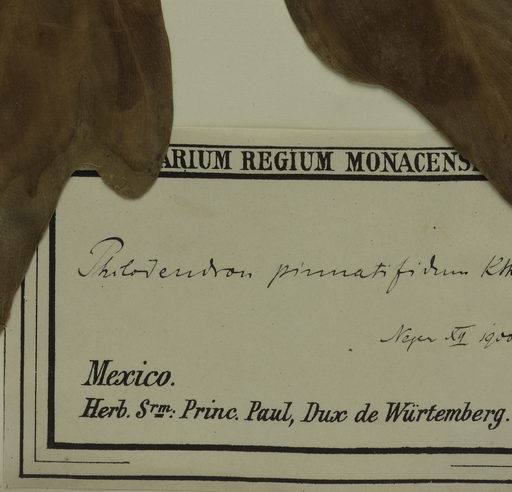 ARIUM REGIUM MONACENS
Philodendron pinnatifidum Kth
XII 1900
Mexico.
Herb. Srm: Princ. Paul, Dux de Würtemberg.